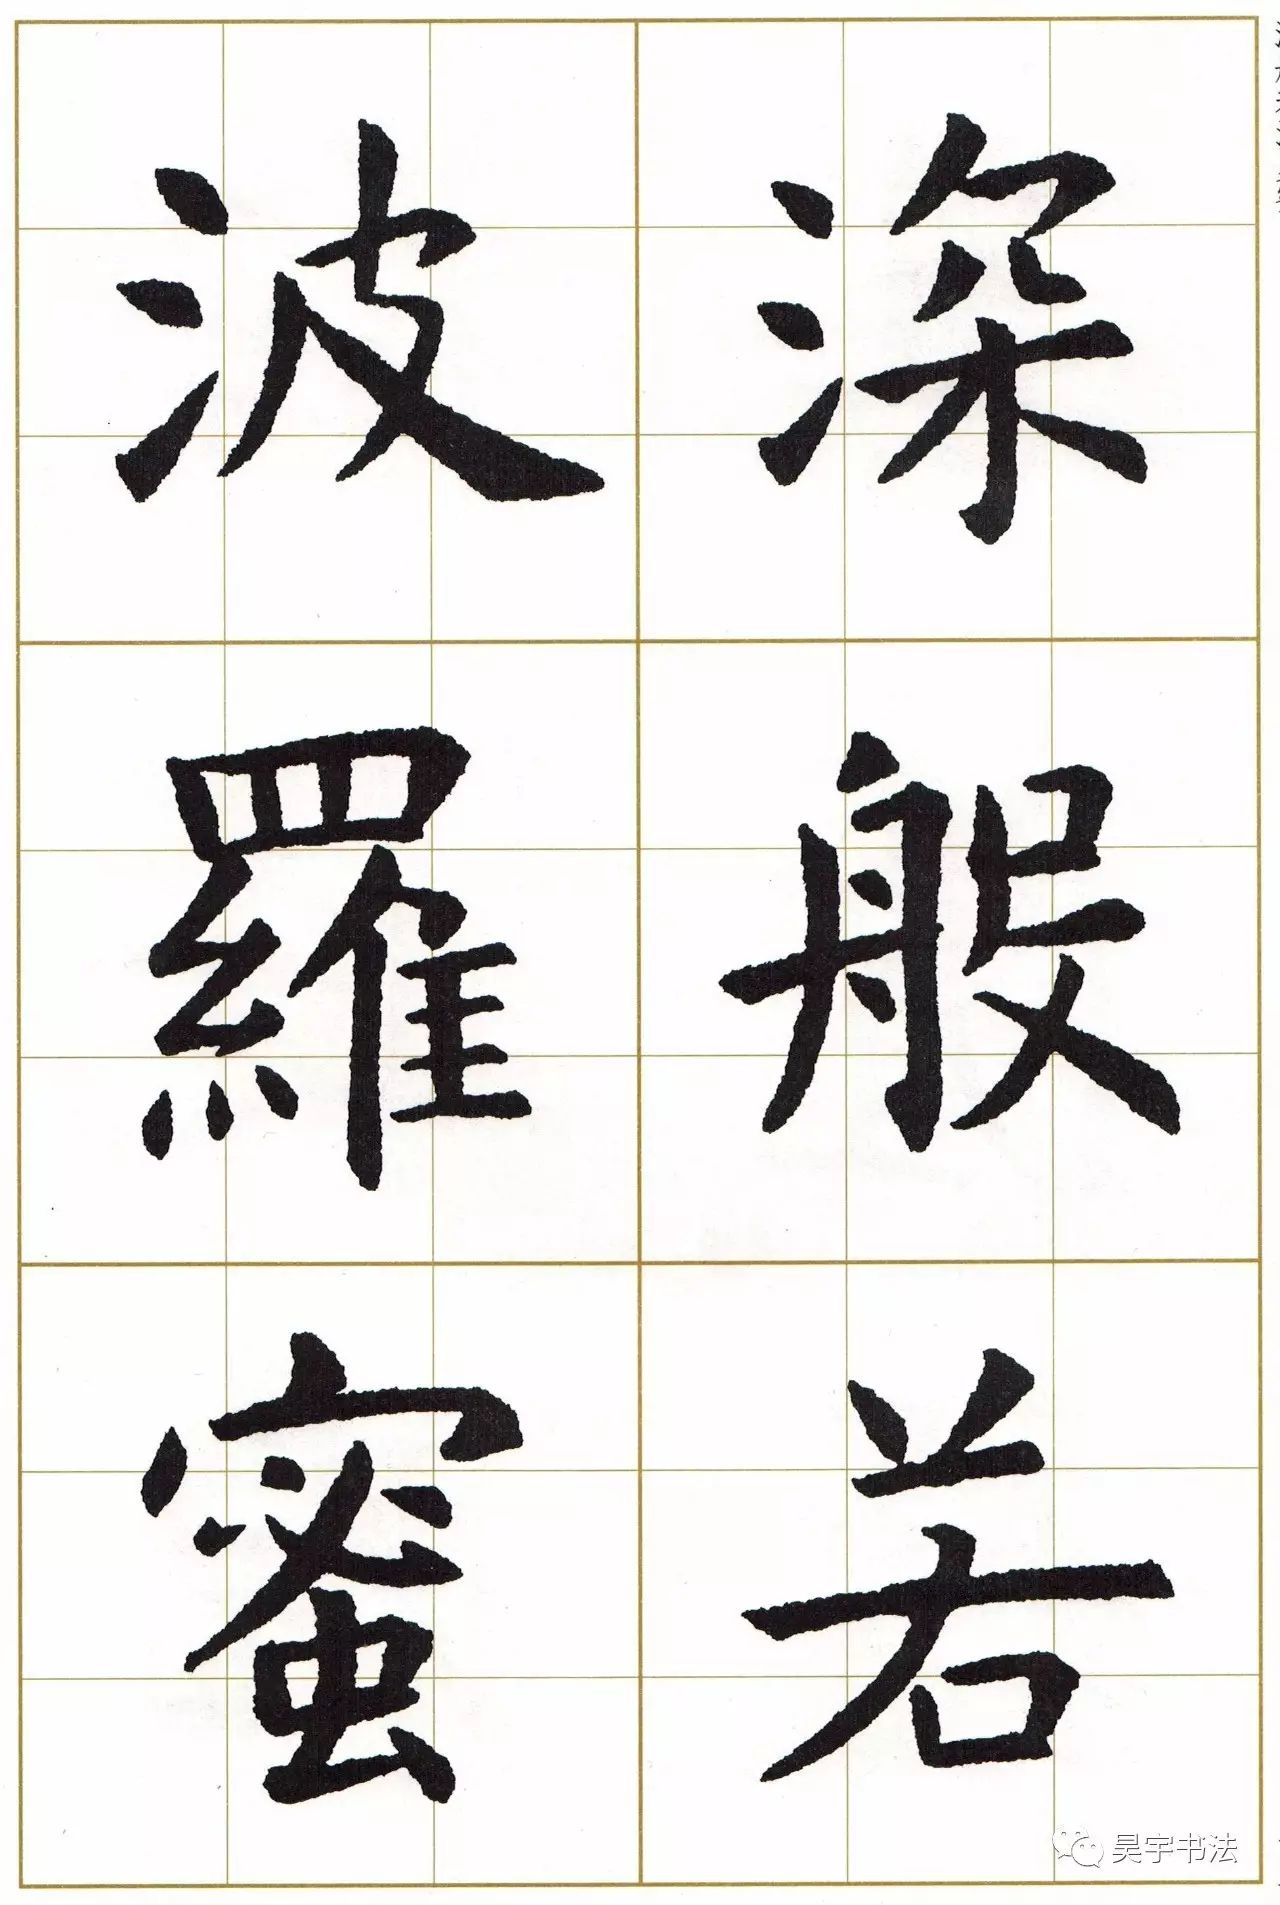 深般若
波羅蜜
昊宇书法